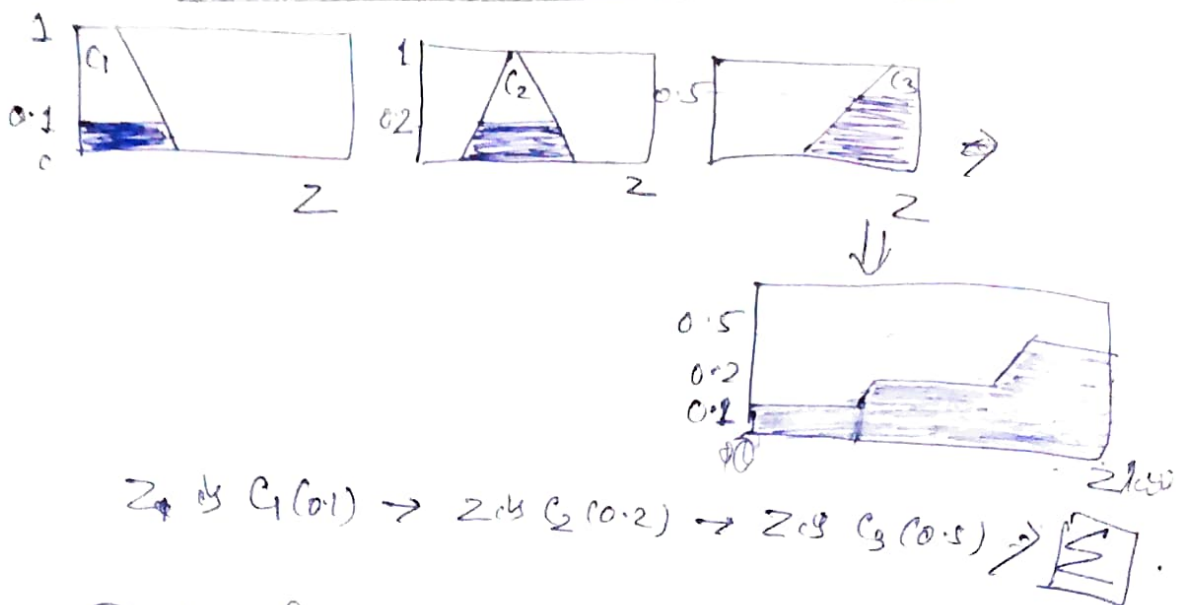 1 C1 0.1 0 Z
1 C2 0.2 Z
0.5 C3 Z
⇒
⇓
0.5
0.2
0.1
0
Z is C1 (0.1) → Z is C2 (0.2) → Z is C3 (0.5) ⇒ Σ.